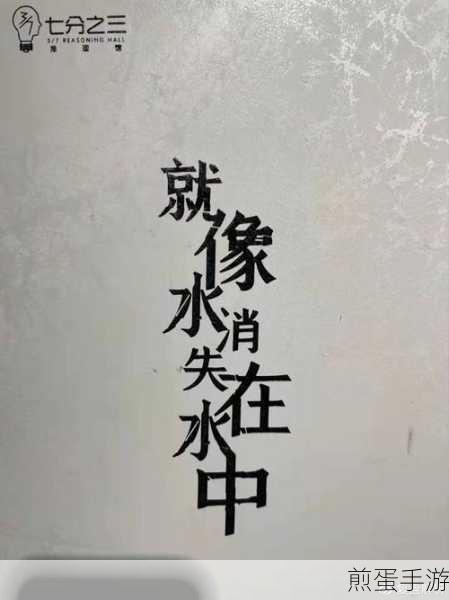 七分之三
3/7 REASONING HALL
推理馆
就像水消失在水中
煎蛋手游